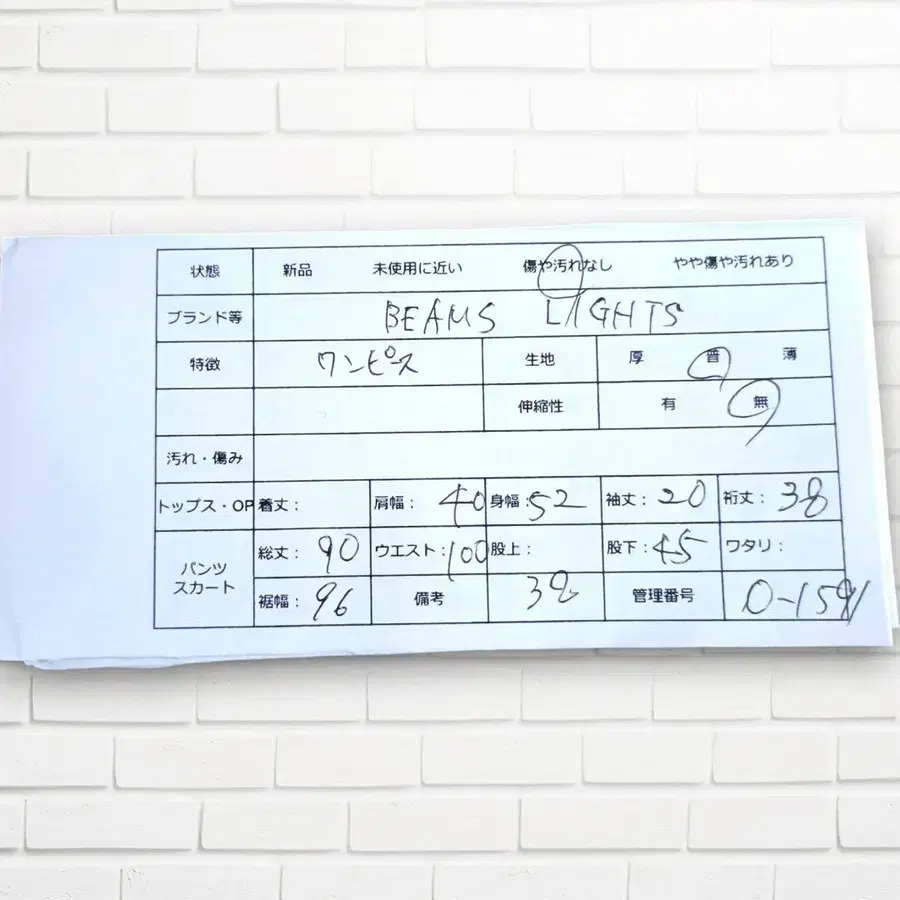 状態 新品 未使用に近い 傷や汚れなし やや傷や汚れあり
ブランド等 BEAMS LIGHTS
特徴 ワンピース 生地 厚 普 薄
伸縮性 有 無
汚れ・傷み
トップス・OP 着丈: 肩幅: 40 身幅: 52 袖丈: 20 裄丈: 38
パンツ
スカート
総丈: 90 ウエスト: 100 股上: 股下: 45 ワタリ:
裾幅: 96 備考 38 管理番号